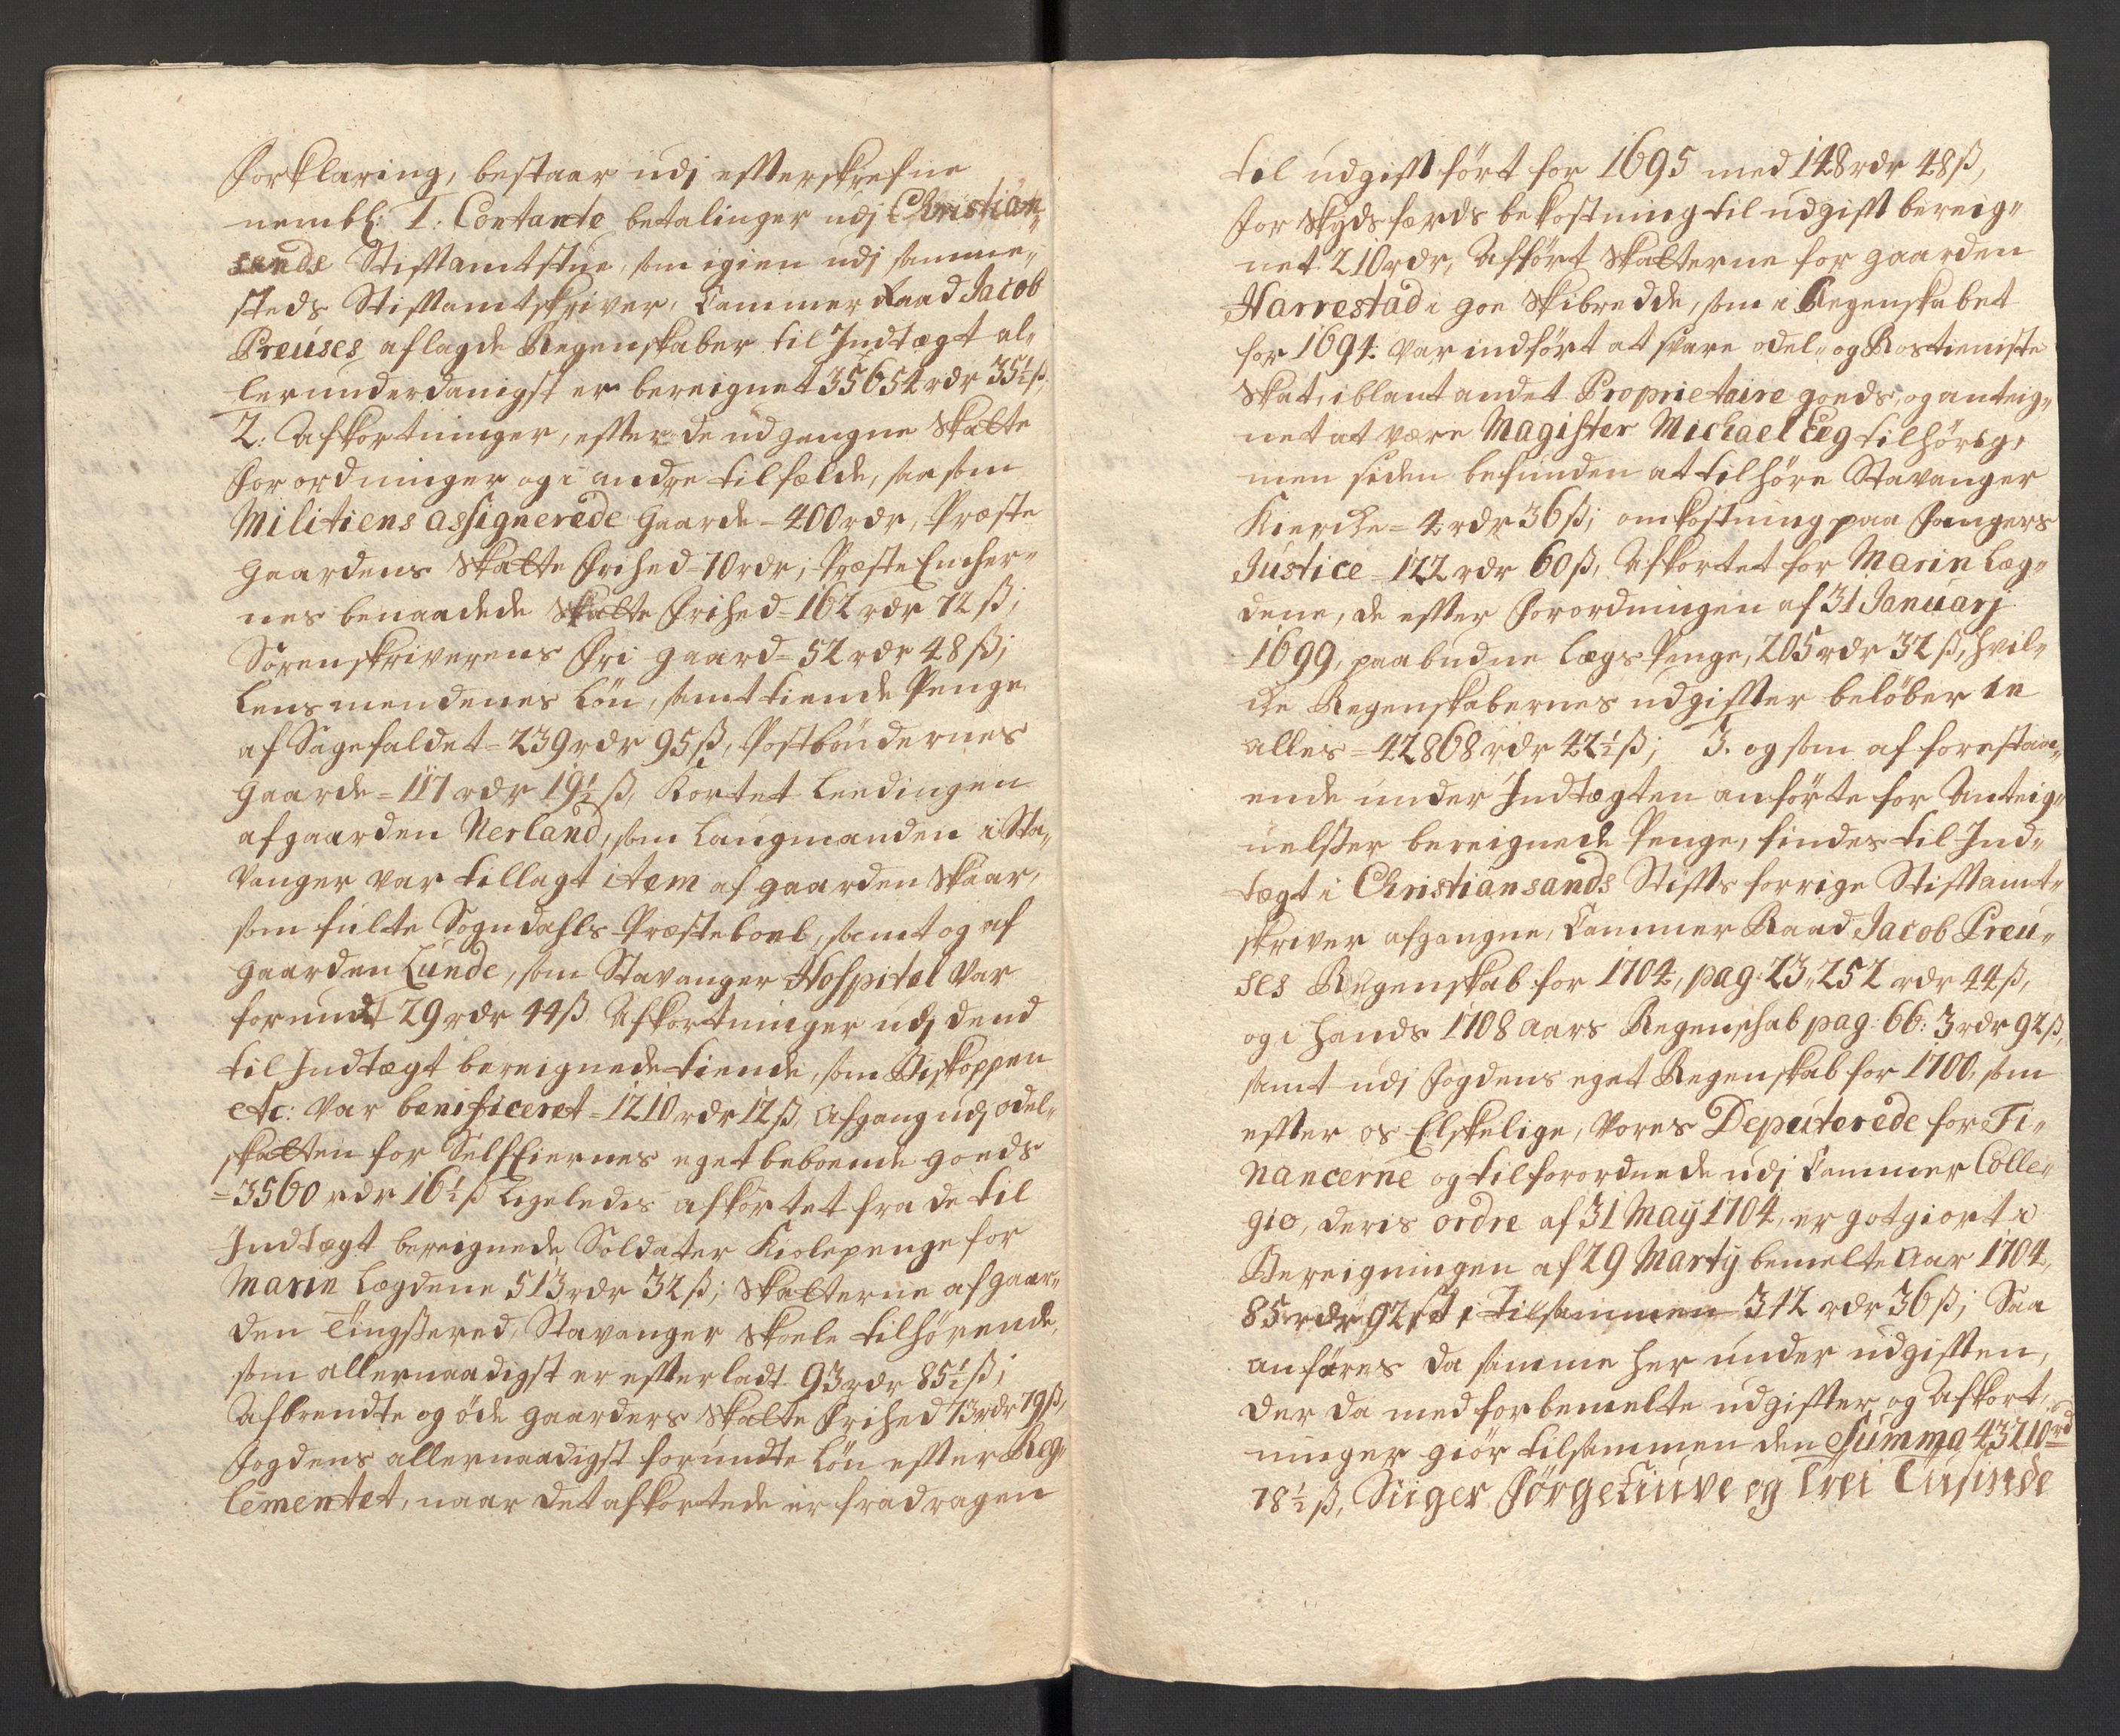 Forklaring, bestaar udj effterskrefne
nembl: 1. Contante betalinger udj Christian„
sands Stifftamtstue, som igien udj samme„
steds Stifftamtskriver, Cammer Raad Jacob
Preuses aflagde Regenskaber til Indtægt al„
lerunderdanigst er bereignet 35654 rdr 35½ ß,
2: Afkortninger, effter de udgangne Skatte
Forordninger og i andre tilfælde, saasom
Militiens assignerede Gaarde = 400 rdr, Præste
Gaardens Skatte Frihed = 70 rdr; Præste Encher„
nes benaadede Skatte Frihed = 162 rdr 72 ß;
Sorenskriverens Fri gaard = 52 rdr 48 ß;
Lensmendenes Løn, samt tiende Penge
af Sagefaldet = 239 rdr 95 ß, Postbøndernes
Gaarde = 117 rdr 19½ ß, Kortet Leedingen
af gaarden Nerland, som Laugmanden i Sta„
vanger var tillagt item af gaarden Skaar,
som fulte Sogndahls Præsteboel, samt og af
gaarden Lunde, som Stavanger Hospital var
forundt 29 rdr 44 ß Afkortninger udj dend
til Indtægt bereignede tiende, som Biskoppen
etc: var benificeret = 1210 rdr 12 ß, Afgang udj odel„
skatten for SelfEiernes eget beboende goeds
= 3560 rdr 16½ ß Ligeledes afkortet fra de til
Indtægt bereignede Soldater Kiolepenge for
Marin Lægdene 513 rdr 32 ß; Skatterne af gaar„
den Tingssered, Stavanger Skoele tilhørende,
som allernaadigst er effterladt 93 rdr 85½ ß;
Afbrendte og øde gaarders Skatte Frihed 73 rdr 79 ß,
Fogdens allernaadigst forundte Løn effter Reg„
lementet, naar det afkortede er fradragen
til udgifft ført for 1695 med 148 rdr 48 ß,
for Skydsfærds bekostning til udgifft bereig„
net 210 rdr, Afført Skatterne for gaarden
Harrestad i Goe Skibredde, som i Regenskabet
for 1694 var indført at svare odel„ og Rostieniste
Skat, iblant andet Proprietaire goeds, og anteig„
net at være Magister Michael Leg tilhørig,
men siden befunden at tilhøre Stavanger
Kierche = 4 rdr 36 ß; omkostning paa Fangers
Justice = 122 rdr 60 ß, Afkortet for Marin Læg„
dene, de effter Forordningen af 31 Januarj
1699, paabudne Lægs Penge, 205 rdr 32 ß, hvil„
che Regenskabernes udgiffter beløber in
alles = 42868 rdr 42½ ß; 3. og som af forestaa„
ende under Indtægten anførte for Anteig„
nelsser bereignede Penge, findes til Ind„
tægt i Christiansands Stiffts forrige Stifftamt„
skriver afgangne, Cammer Raad Jacob Preu„
ses Regenskab for 1704, pag: 23, 252 rdr 44 ß,
og i hands 1708 aars Regenskab pag: 66: 3 rdr 92 ß,
samt udj Fogdens eget Regenskab for 1700, som
effter os Elskelige, Vores Deputerede for Fi„
nancerne og tilforordnede udj Cammer Colle„
gio, deris ordre af 31 Maÿ 1704, er gotgiort i
Bereigningen af 29 Martÿ bemelte Aar 1704,
85 rdr 92 ß, tilsammen 342 rdr 36 ß; Saa
anføres da samme her under udgifften,
der da med forbemelte udgiffter og Afkort„
ninger giør tilsammen den Summa 43210 rd
78½ ß, SiigerFørgetiuve og Trei Tusinde